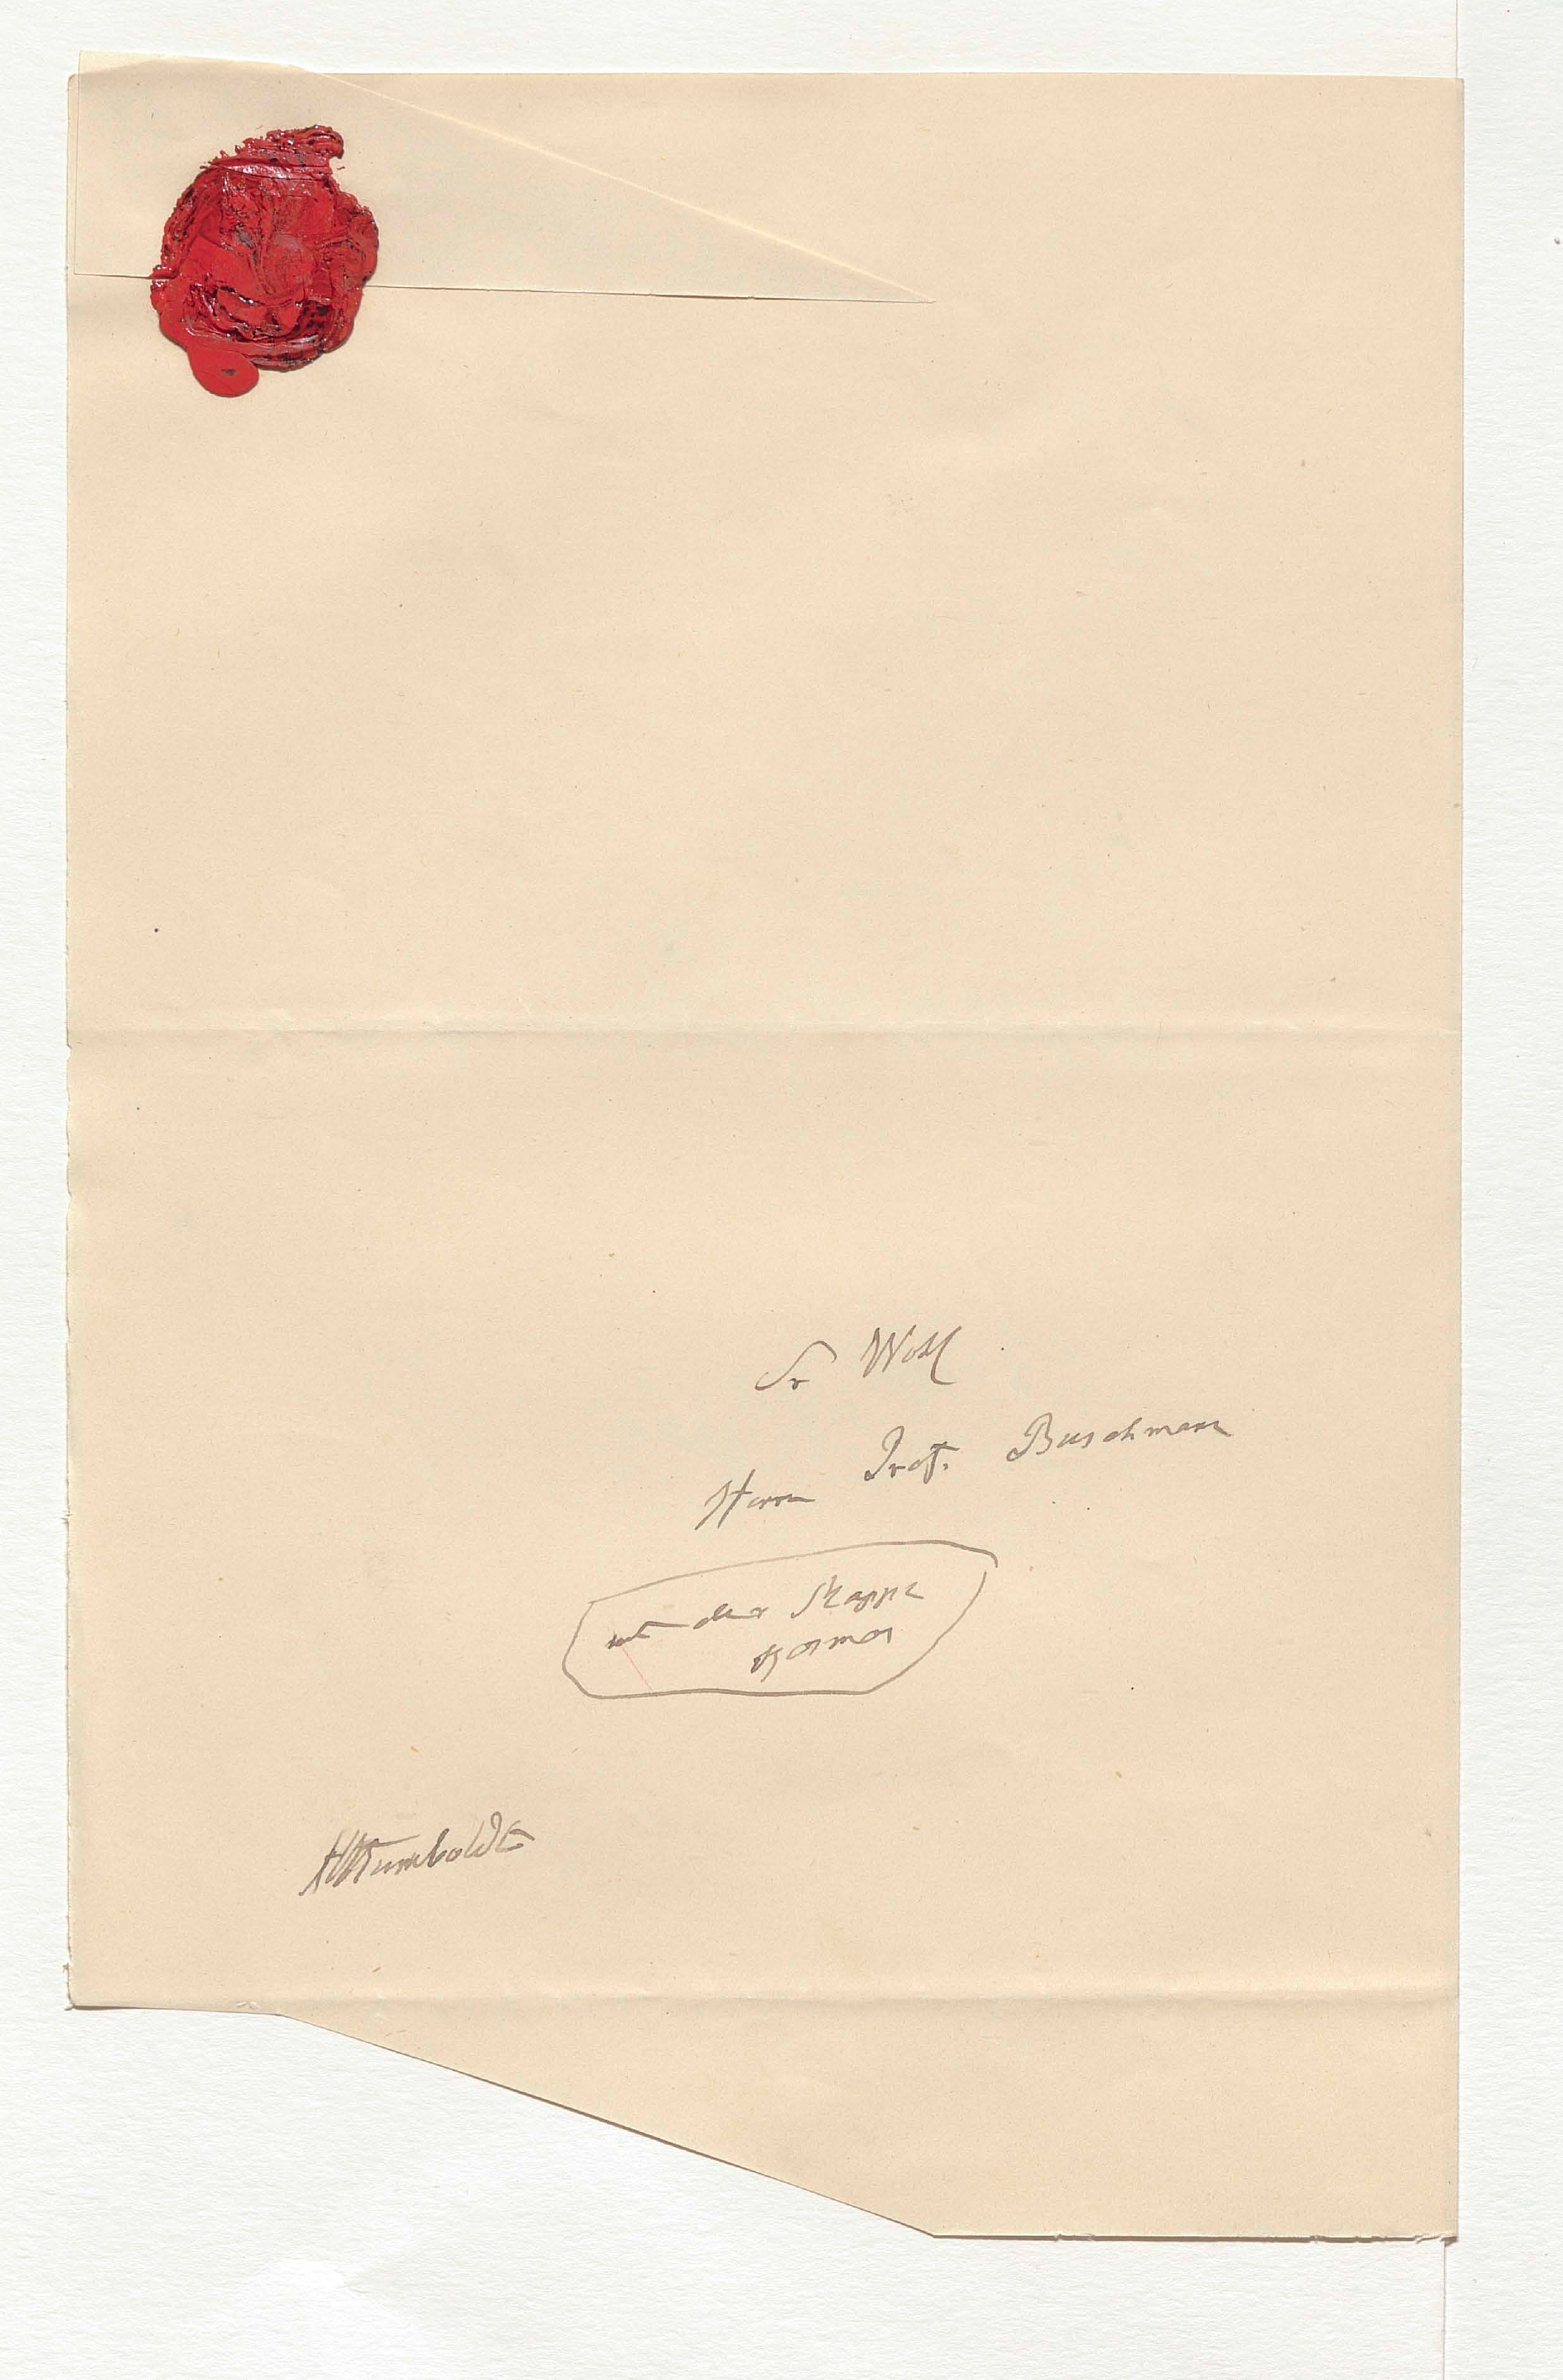 Sr Wohl
Herrn Prof. Buschmann
mit der Mappe
Kosmos
AvHumboldt